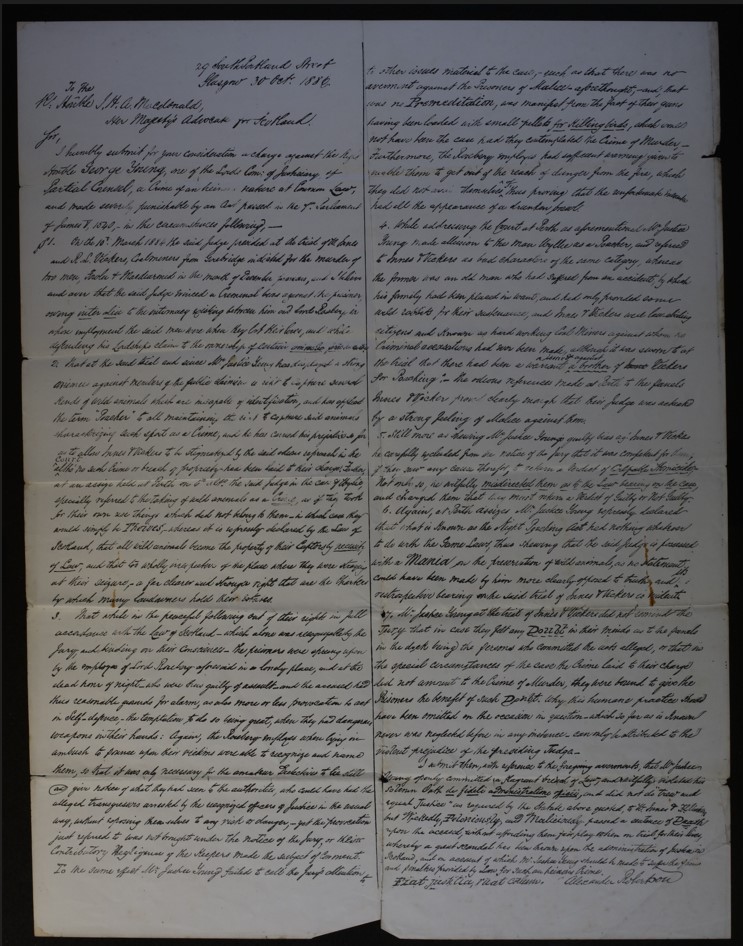 29 South Portland Street
Glasgow 30 Oct. 1886.
To The
Rt. Honble J. H. A. Macdonald,
Her Majesty's Advocate for Scotland,
Sir,
I humbly submit for your consideration a charge against the Right
Honble George Young, one of the Lords Com: of Justiciary of
Partial Counsel, a Crime of an heinous nature at Common Law,
and made punishable by an Act passed in the 7th Parliament
of James V, 1540, in the circumstances following,
§1. On the March 1884 the said Judge presided at the trial of Innes
and Vickers, Coalminers from Gorebridge indicted for the murder of
two men, Fowler & Macdiarmid in the month of December previous, and I believe
and aver that the said Judge evinced a Criminal bias against the prisoners
owing inter alia to the intimacy existing between him and Lord Rosebery in
whose employment the said men were when they lost their lives, and while
his Lordships claim to the ownership of certain animals,
2. That at the said trial and since Mr Justice Young has displayed a strong
against members of the public desire to capture several
kinds of wild animals which are incapable of identification, and has applied
the term "Poacher" to all maintaining the right to capture said animals
characterizing such sport as a Crime, and he has carried his prejudice so far
as to allow Innes & Vickers to be stigmatized by the said odious
no such crime or breach of propriety had been laid to their charge.
at an assize held at Perth on the said Judge in the case of Wyllie
specially referred to the taking of wild animals as a Crime, as if they took
for their own use things which did not belong to them - in which case they
would simply be Thieves, whereas it is expressly declared by the Law of
Scotland, that all wild animals become the property of their Captors by
of Law, and that too wholly irrespective of the place where they were
at their seizure, a far clearer and stronger right than are the
by which many landowners hold their estates.
3. That while in the peaceful following out of their rights in full
accordance with the Law of Scotland - which alone was recognisable by the
Jury and binding on their Consciences - the prisoners were sprung upon
by the employees of Lord Rosebery aforesaid in a lonely place, and at the
dead hour of night, who were thus guilty of assault and the accused had
thus reasonable grounds for alarm, as also more or less provocation to act
in Self-defence, the temptation to do so being great, when they had dangerous
weapons in their hands: Again, the Rosebery employees when lying in
ambush to pounce upon their victims were able to recognise and name
them, so that it was only necessary for the amateur Detectives to
give notice of what they had seen to the authorities, who could have had the
alleged transgressors arrested by the recognized officers of Justice in the usual
way, without exposing themselves to any risk or danger, yet the provocation
just referred to was not brought under the notice of the Jury, or the
Contributory Negligence of the Keepers made the subject of Comment.
To the same effect Mr Justice Young failed to call the Jury's attention
to other issues material to the case, such as that there was no
averment against the Prisoners of Malice aforethought, and that
was no Premeditation, was manifest from the fact of their guns
having been loaded with small pellets for killing birds, which would
not have been the case had they contemplated the Crime of Murder,
Furthermore, the Rosebery employees had sufficient warning given to
enable them to get out of the reach of danger from the fire, which
they did not avail themselves, Thus proving that the unfortunate
had all the appearance of a drunken brawl.
4. While addressing the Court at Perth as aforementioned Mr Justice
Young made allusion to the man Wyllie as a Poacher, and referred
to Innes & Vickers as bad characters of the same category, whereas
the former was an old man who had suffered from an accident, by which
his family had been placed in want, and had only procured some
wild rabbits for their Sustenance, and Innes & Vickers were law abiding
citizens and known as hard working Coal Miners against whom no
Criminal accusations had ever been made, although it was sworn to at
the trial that there had been a warrant against a brother of Innes Vickers
for Poaching: - the odious references made at Perth to the panels
Innes & Vickers prove clearly enough that their Judge was actuated
by a strong feeling of Malice against them.
5. Still more as shewing Mr Justice Young's guilty bias against Innes & Vickers
he carefully excluded from the notice of the Jury that it was competent for them,
if they saw any cause therefor, to return a verdict of Culpable Homicide.
Not only so, he artfully misdirected them as to the Law bearing on the case,
and charged them that they must return a Verdict of Guilty or Not Guilty.
6. Again, at Perth Assizes Mr Justice Young expressly declared
that what is known as the Night Poaching Act had nothing whatever
to do with the Game Laws, thus shewing that the said Judge is possessed
with a Mania in the preservation of wild animals, as no statement
could have been made by him more clearly opposed to truth, and
retrospective bearing on the said trial of Innes & Vickers is evident.
7. Mr Justice Young at the trial of Innes & Vickers did not remind the
Jury that in case they felt any Doubt in their minds as to the panels
in the dock being the persons who committed the acts alleged, or that in
the special circumstances of the case the Crime laid to their charge
did not amount to the Crime of Murder, they were bound to give the
Prisoners the benefit of such Doubt. Why this humane practice should
have been omitted on the occasion in question - which so far as is known
never was neglected before in any instance - can only be attributed to the
violent prejudice of the presiding Judge.
I submit then, with reference to the foregoing averments, that Mr Justice
Young not only committed a flagrant breach of Law, and wilfully violated his
solemn Oath de fideli administratione officii, and did not do "true and
equal Justice" as required by the Statute above quoted, to Wm. Innes &
but Wickedly, Feloniously, and Maliciously passed a sentence of Death
upon the accused, without affording them fair play when on trial for their lives,
whereby a great scandal has been thrown upon the administration of Justice in
Scotland, and on account of which Mr Justice Young should be made to suffer the pains
and penalties provided by Law for such an heinous Crime.
Fiat justitia, ruat coelum. Alexander Robertson